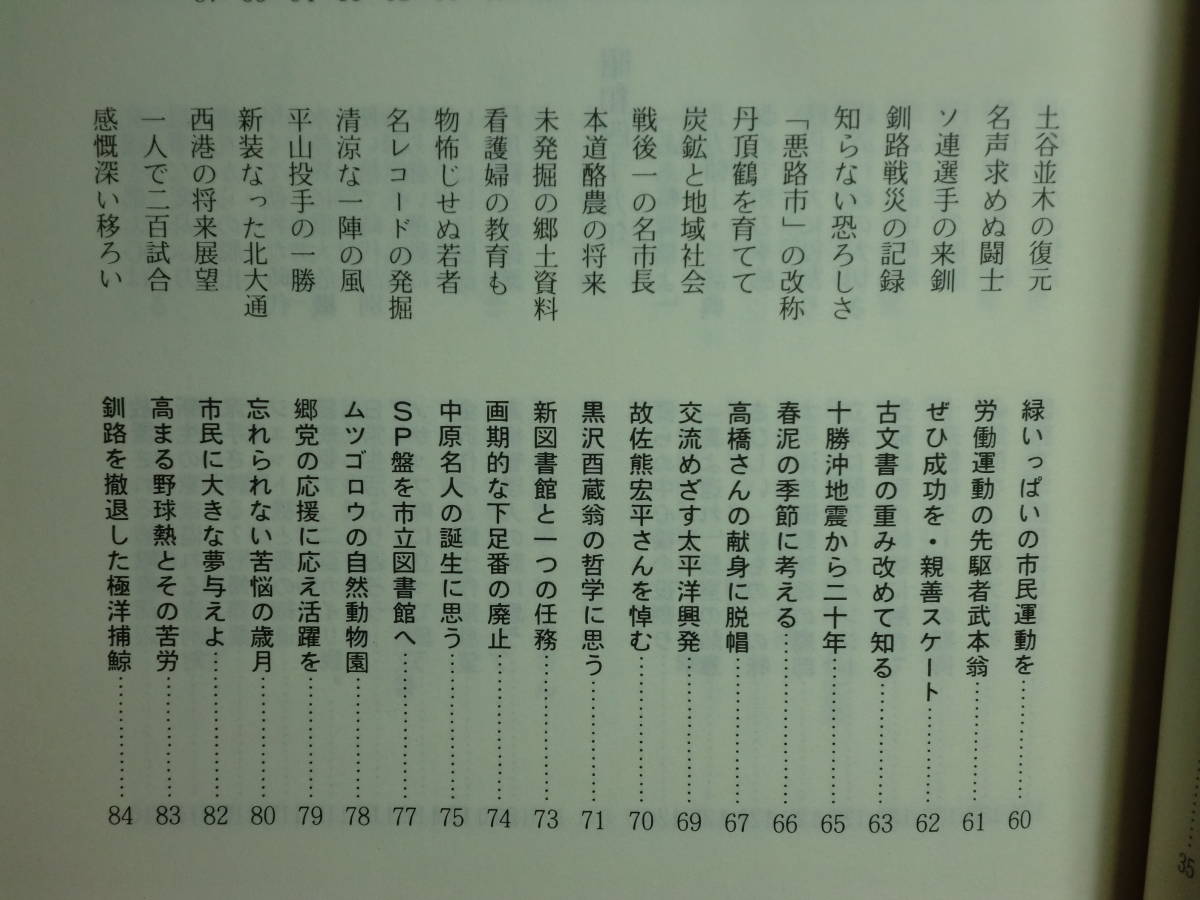 35
土谷並木の復元 緑いっぱいの市民運動を………… 60
名声求めぬ闘士 労働運動の先駆者武本翁………… 61
ソ連選手の来釧 ぜひ成功を・親善スケート………… 62
釧路戦災の記録 古文書の重み改めて知る………… 63
知らない恐ろしさ 十勝沖地震から二十年………… 65
「悪路市」の改称 春泥の季節に考える………… 66
丹頂鶴を育てて 高橋さんの献身に脱帽………… 67
炭鉱と地域社会 交流めざす太平洋興発………… 69
戦後一の名市長 故佐熊宏平さんを悼む………… 70
本道酪農の将来 黒沢酉蔵翁の哲学に思う………… 71
未発掘の郷土資料 新図書館と一つの任務………… 73
看護婦の教育も 画期的な下足番の廃止………… 74
物怖じせぬ若者 中原名人の誕生に思う………… 75
名レコードの発掘 ＳＰ盤を市立図書館へ………… 77
清涼な一陣の風 ムツゴロウの自然動物園………… 78
平山投手の一勝 郷党の応援に応え活躍を………… 79
新装なった北大通 忘れられない苦悩の歳月………… 80
西港の将来展望 市民に大きな夢与えよ………… 82
一人で二百試合 高まる野球熱とその苦労………… 83
感慨深い移ろい 釧路を撤退した極洋捕鯨………… 84